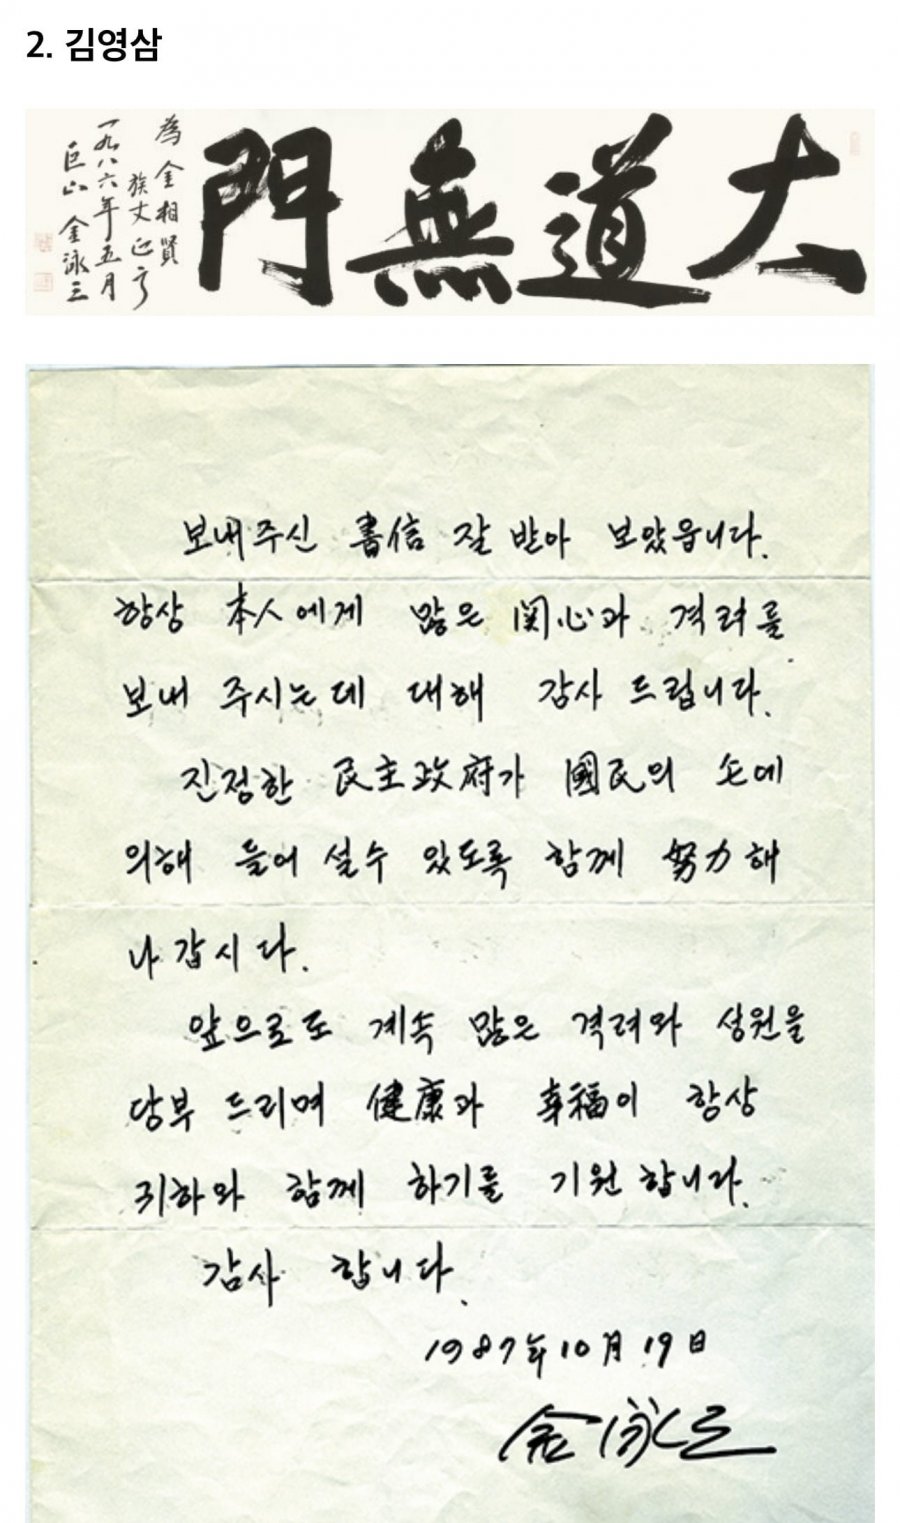 2. 김영삼
大道無門
為 金相賢
族丈
一九八六年 五月
巨山 金泳三
보내주신 書信 잘 받아 보았읍니다.
항상 本人에게 많은 関心과 격려를
보내 주시는데 대해 감사 드립니다.
진정한 民主政府가 國民의 손에
의해 들어 설수 있도록 함께 努力해
나갑시다.
앞으로도 계속 많은 격려와 성원을
당부 드리며 健康과 幸福이 항상
귀하와 함께 하기를 기원 합니다.
감사 합니다.
1987年 10月 19日
金泳三